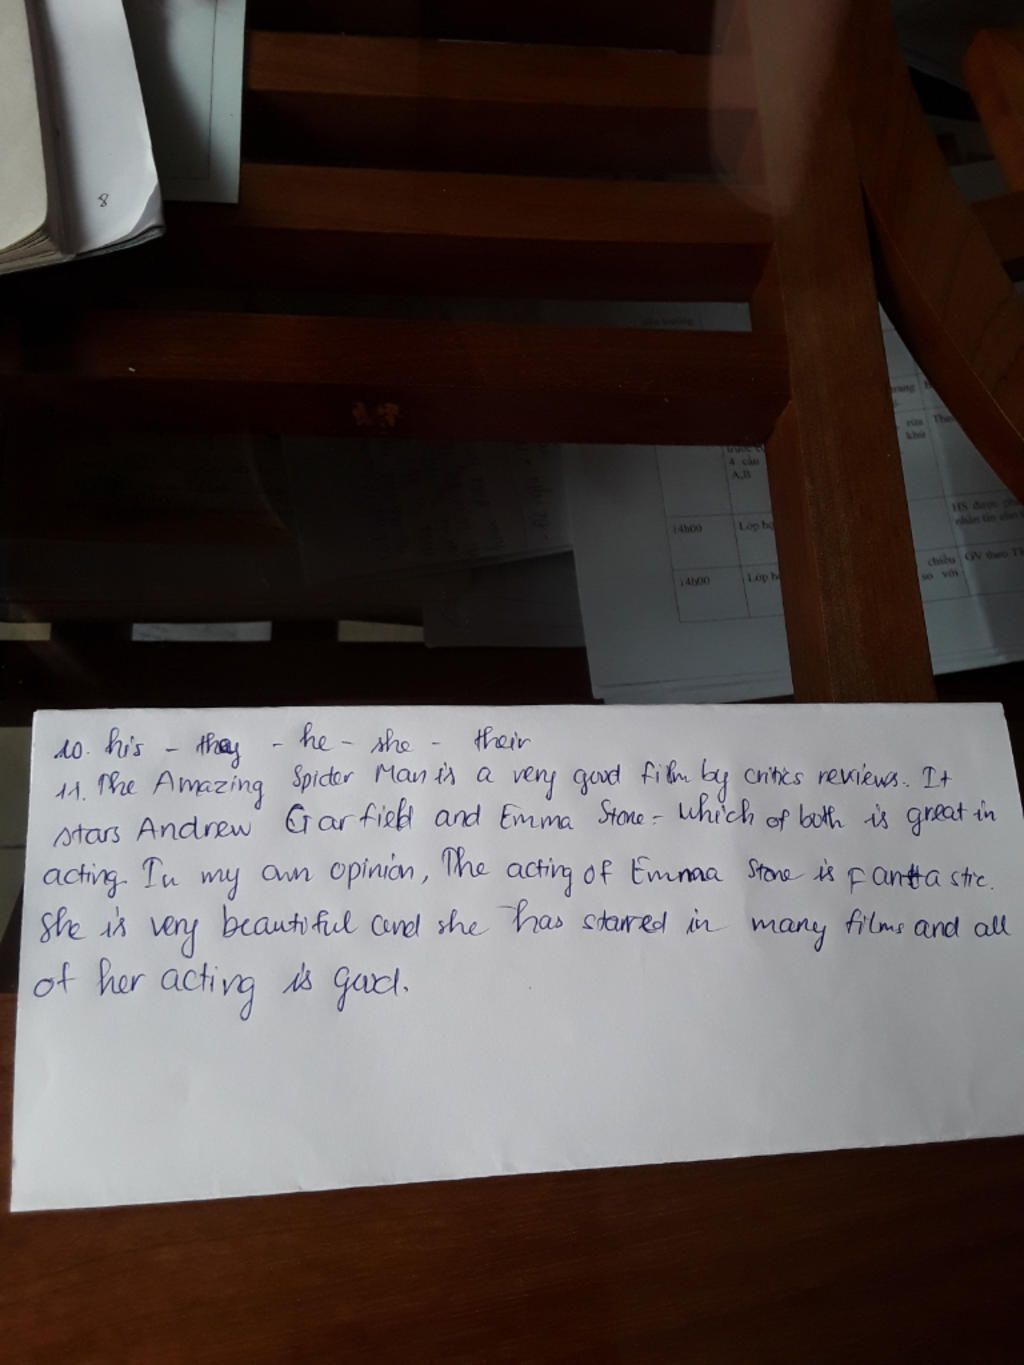 8
trước
4 câu
A,B
rửa
khử
14h00
Lớp
HS được
nhắn tin cho
14h00
Lớp
chiều
so với
GV theo
10. his - they - he - she - their
11. The Amazing Spider Man is a very good film by critics reviews. It
stars Andrew Garfield and Emma Stone - which of both is great in
acting. In my own opinion, The acting of Emma Stone is Fantastic.
She is very beautiful and she has starred in many films and all
of her acting is good.